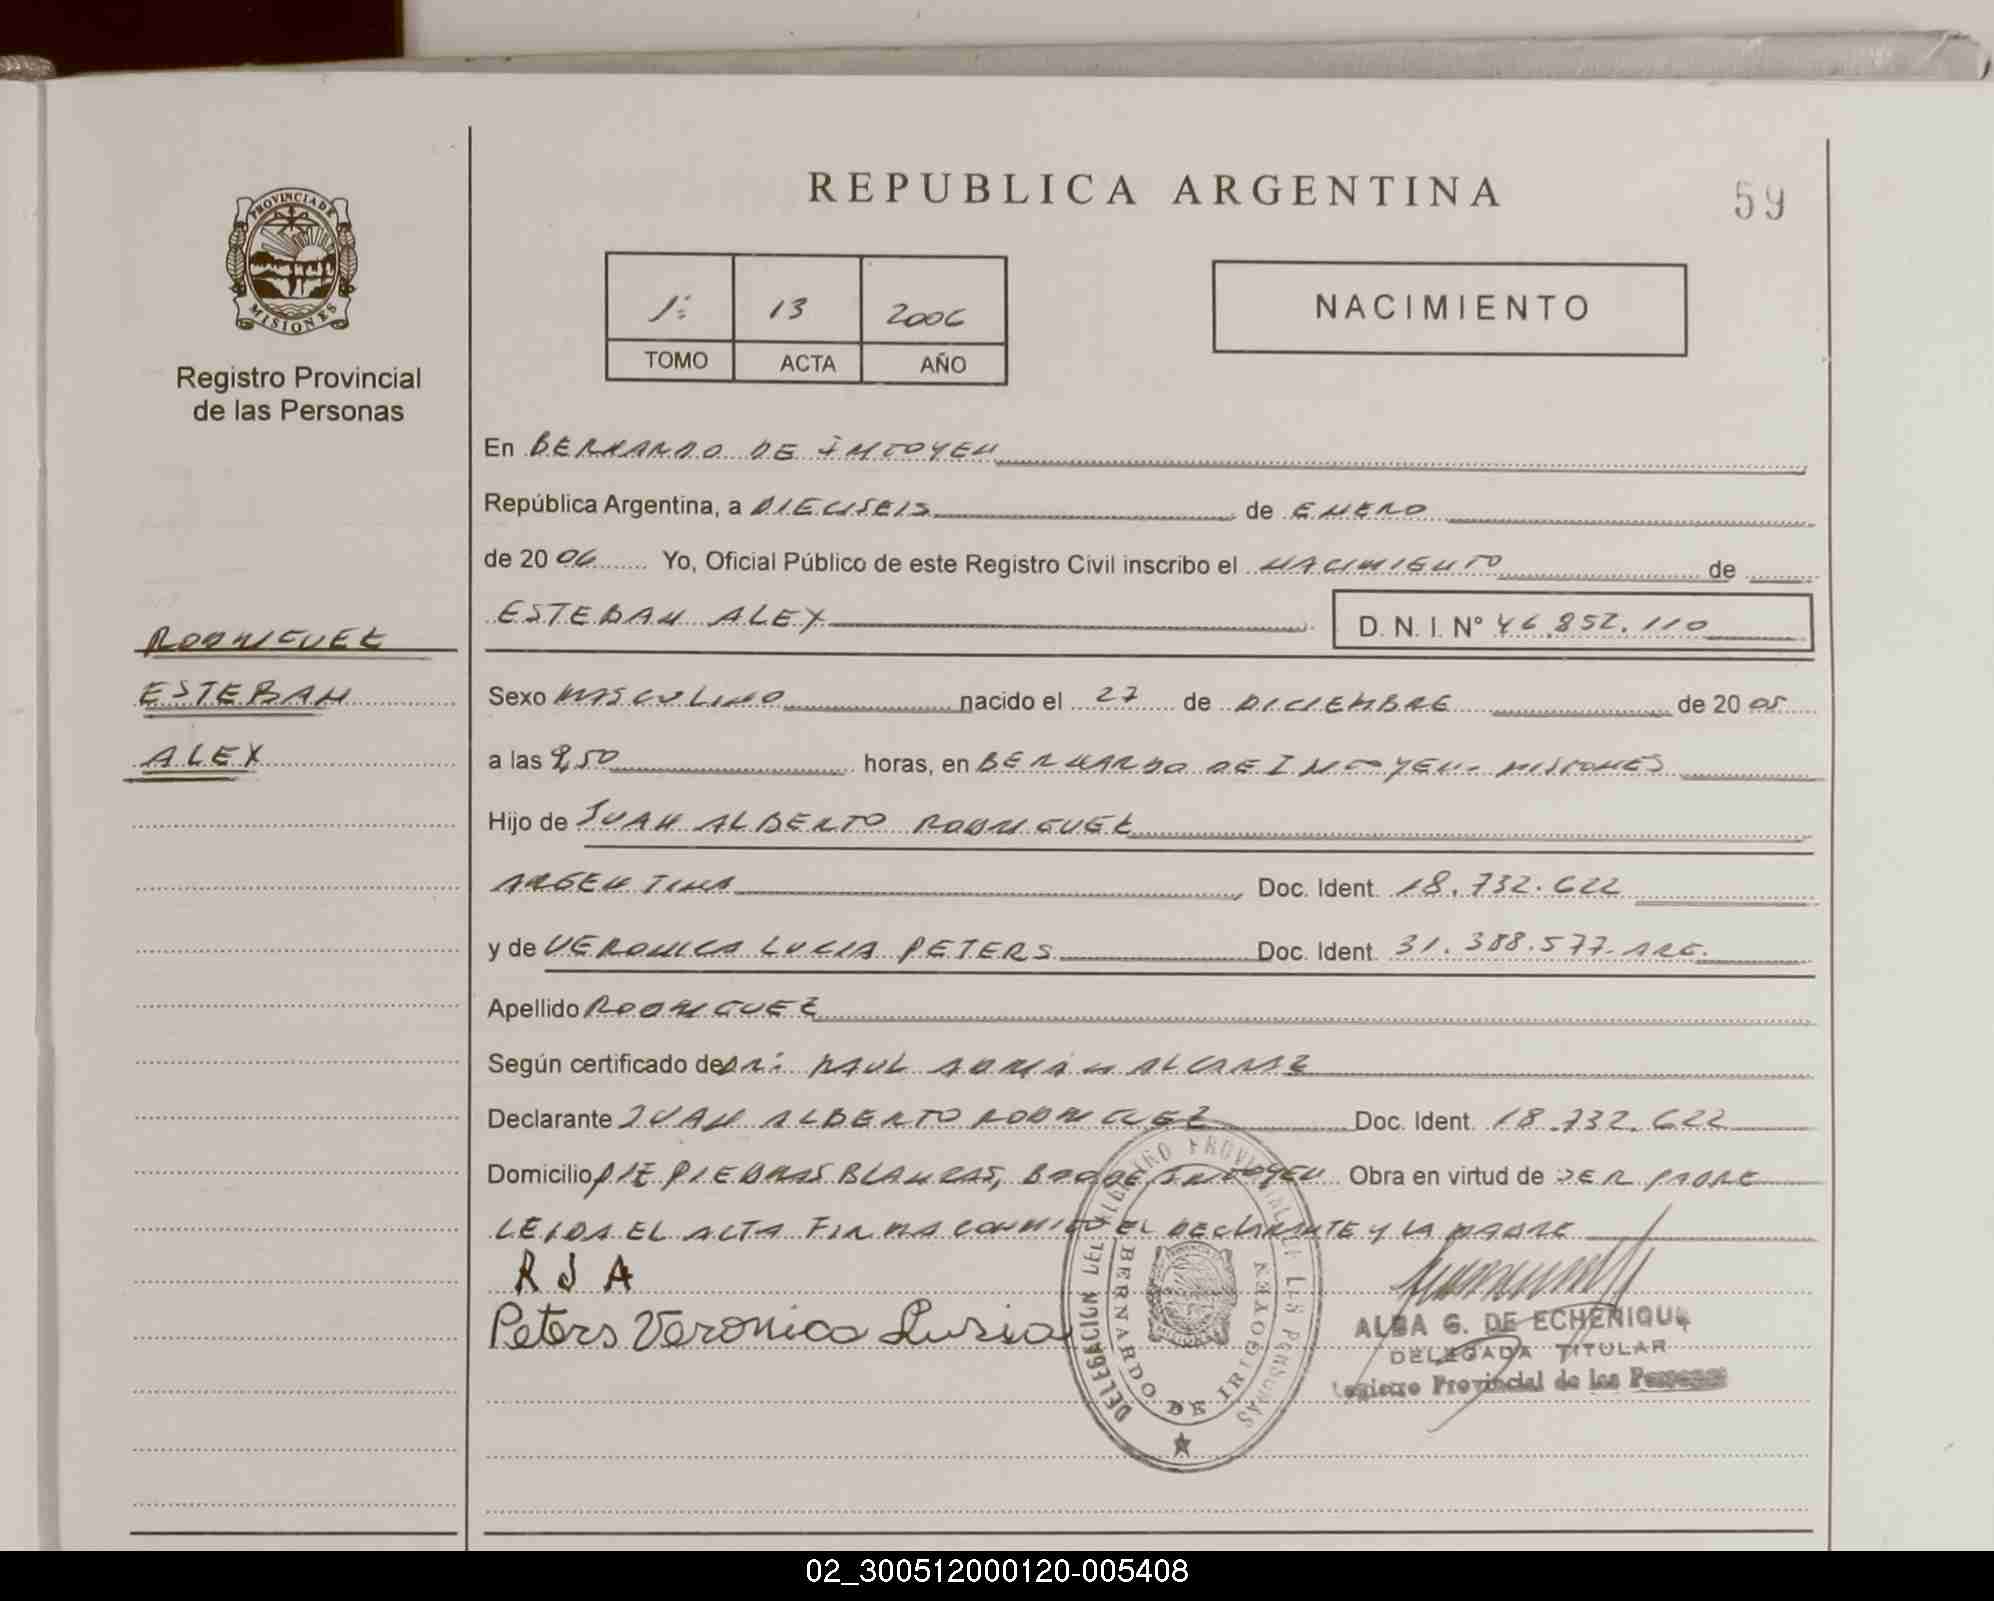 REPUBLICA ARGENTINA
59
PROVINCIA DE
MISIONES
Registro Provincial
de las Personas
1: 13 2006
TOMO ACTA AÑO
NACIMIENTO
En BERNARDO DE IRIGOYEN
República Argentina, a DIECISEIS de ENERO
de 20 06 Yo, Oficial Público de este Registro Civil inscribo el NACIMIENTO de
ESTEBAN ALEX D. N. I. N° 46.852.110
RODRIGUEZ
ESTEBAN
ALEX
Sexo MASCULINO nacido el 27 de DICIEMBRE de 20 05
a las 9,50 horas, en BERNARDO DE IRIGOYEN- MISIONES
Hijo de JUAN ALBERTO RODRIGUEZ
ARGENTINA Doc. Ident. 18.732.622
y de VERONICA LUCIA PETERS Doc. Ident. 31.388.577- ARG.
Apellido RODRIGUEZ
Según certificado de DR: RAUL ADRIAN ALCARAZ
Declarante JUAN ALBERTO RODRIGUEZ Doc. Ident. 18.732.622
Domicilio PJE PIEDRAS BLANCAS, BDO DE IRIGOYEN Obra en virtud de SER PADRE
LEIDA EL ACTA FIRMA CONMIGO EL DECLARANTE Y LA MADRE
R J A
Peters Veronica Lusia
DELEGACION DEL REGISTRO PROVINCIAL DE LAS PERSONAS
BERNARDO DE IRIGOYEN
ALBA G. DE ECHENIQUE
DELEGADA TITULAR
Registro Provincial de las Personas
02_300512000120-005408